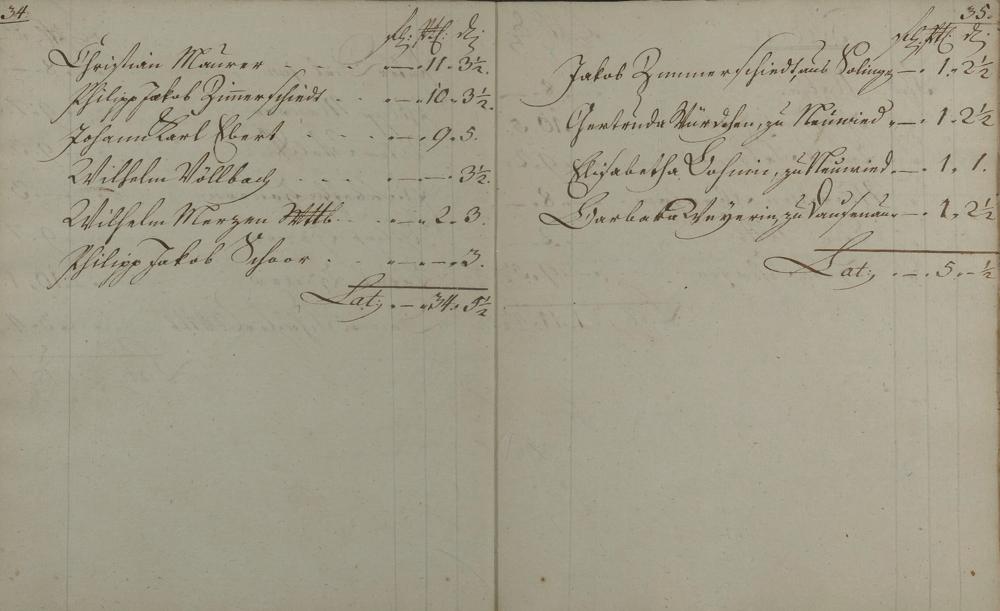 34.
fl: Xr: d;
Christian Maurer - - - - . — . 11 . 3½.
Philipp Jakob Zimerschiedt - - . — . 10 . 3½.
Johann Karl Ebert - - - . — . 9 . 5.
Wilhelm Völlbach - - - . — . — . 3½.
Wilhelm Merzen . — . 2 . 3.
Philipp Jakob Schoor . - . — . — . 3.
Lat: . — . 34 . 5½
35.
fl: Xr: d;
Jakob Zimmerschiedt, aus — . 1 . 2½
Gertruda zu Neuwied . — . 1 . 2½
Elisabetha zu Neuwied . — . 1 . 1.
Barbara Meyerin, zu Dausenau . — . 1 . 2½
Lat: . — . 5 . — ½